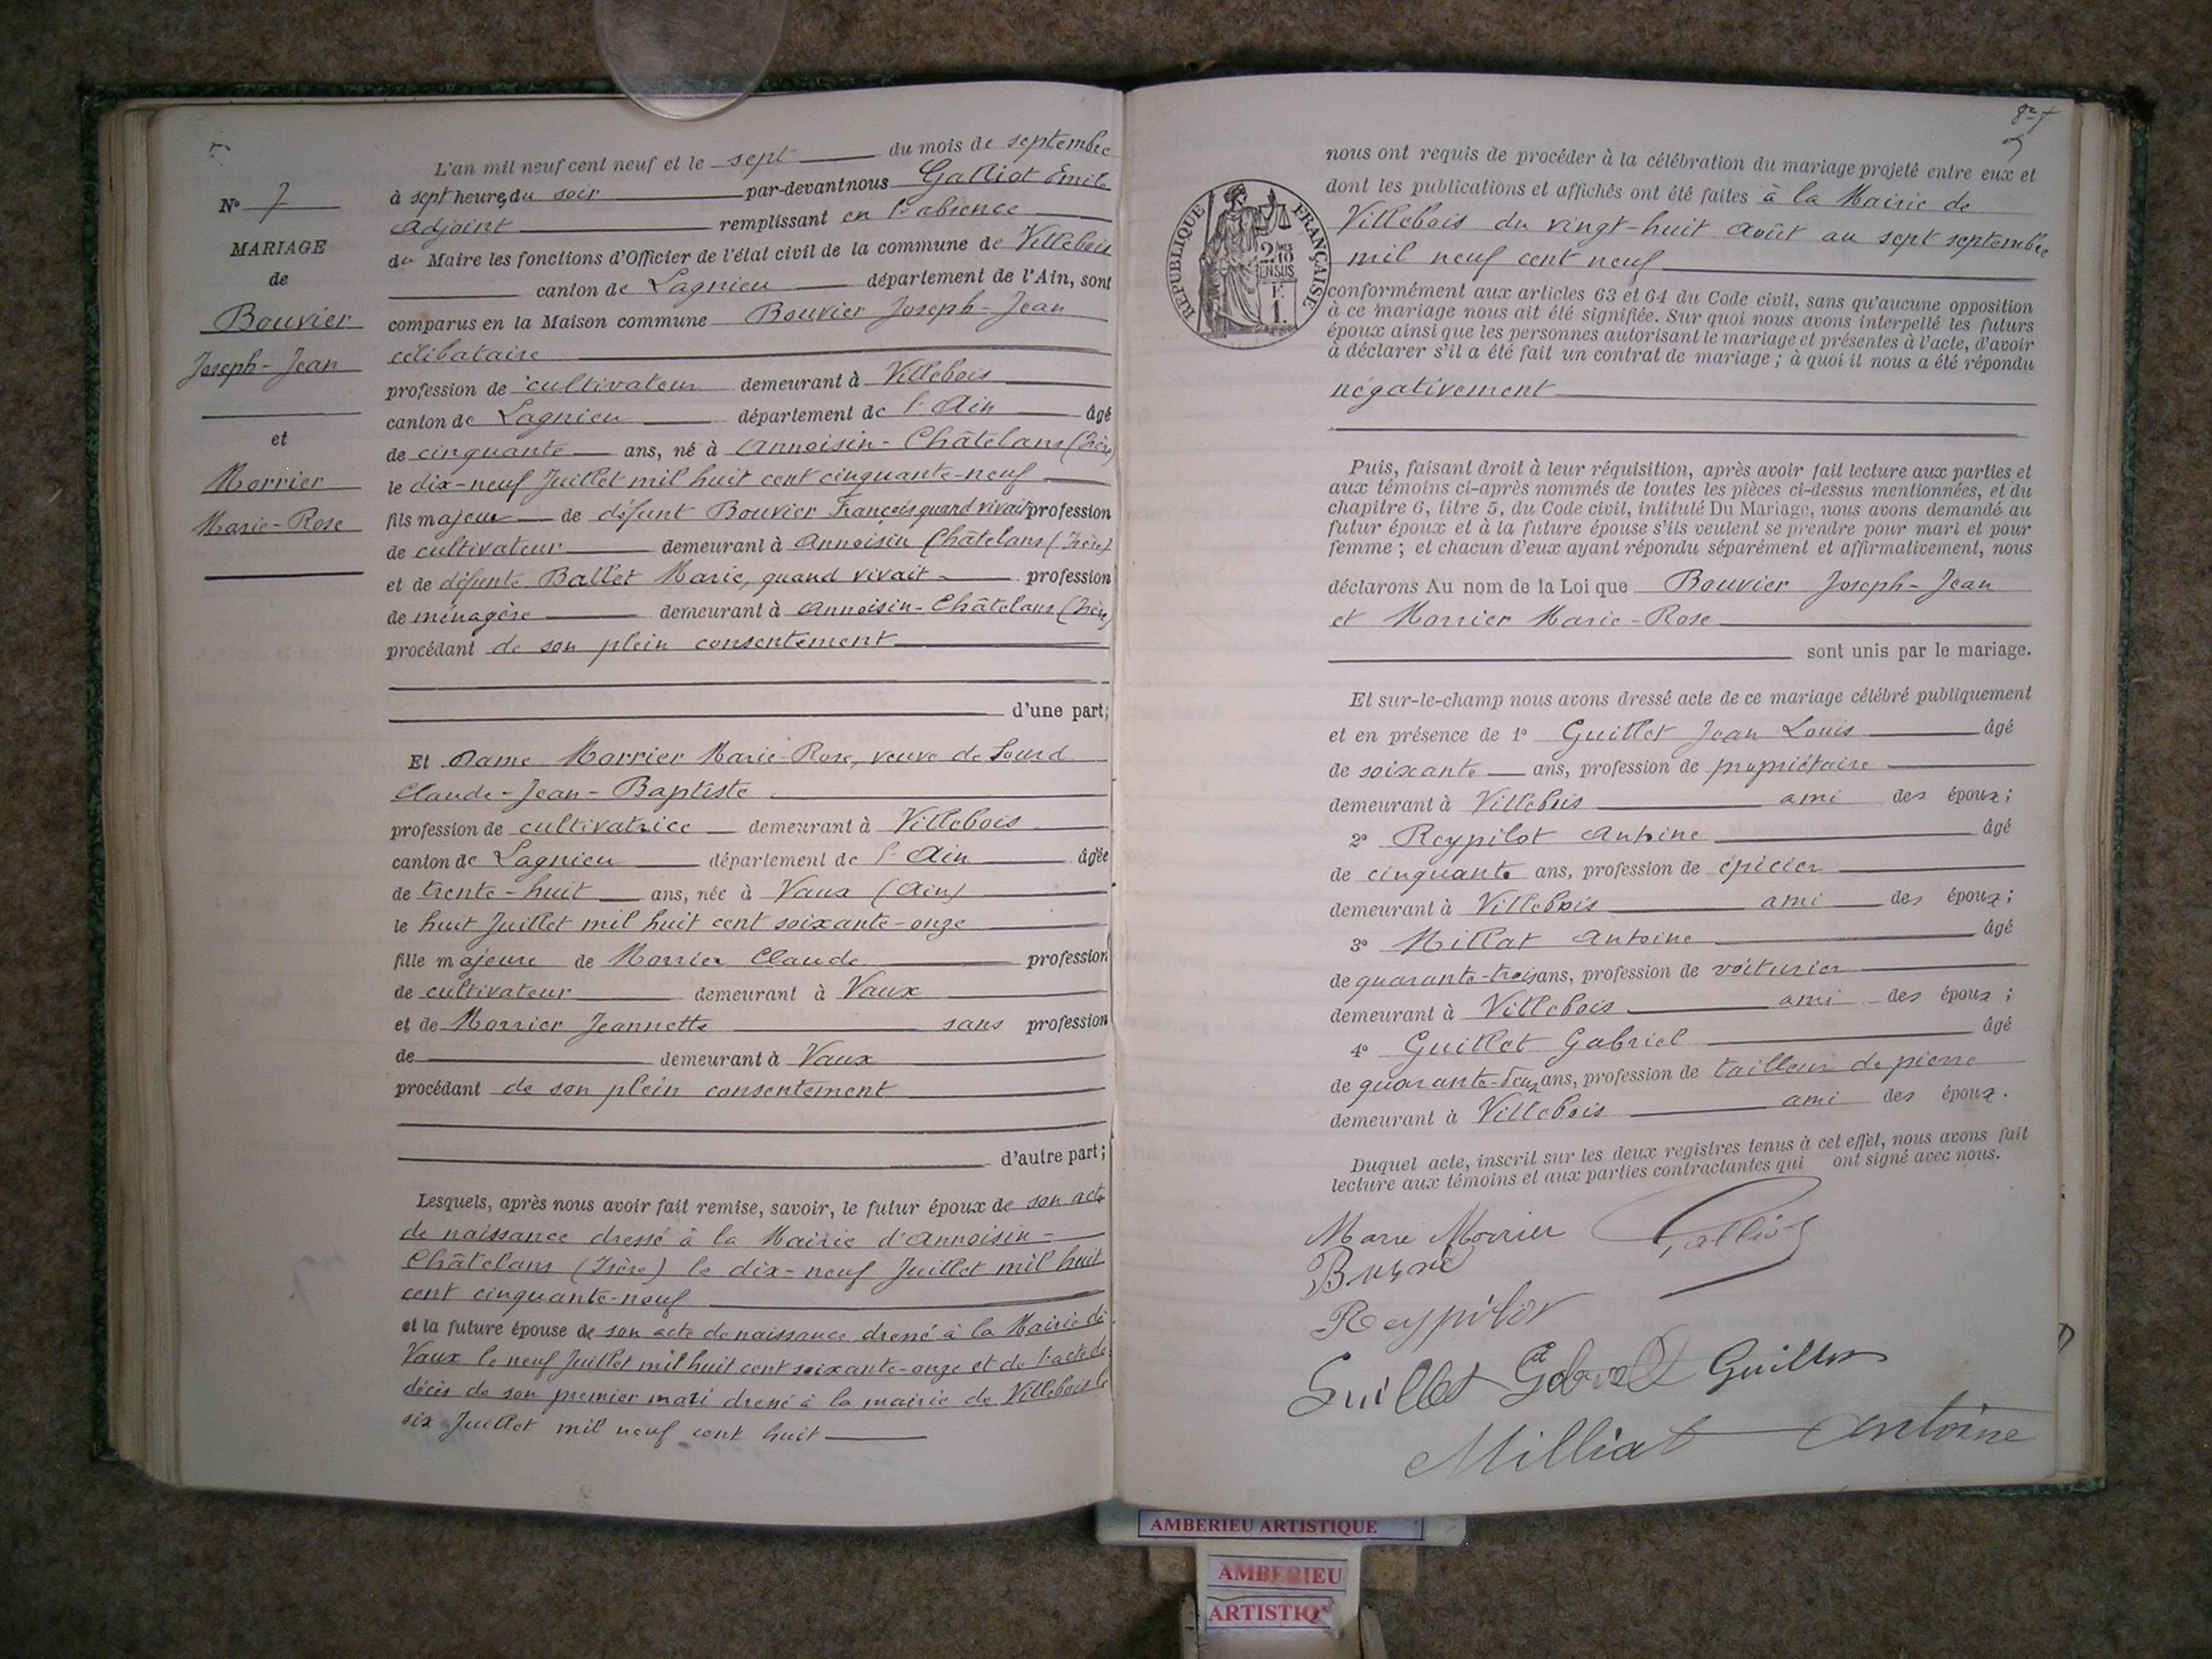 N° 7
MARIAGE
de
Bouvier
Joseph-Jean
et
Morrier
Marie-Rose
L'an mil neuf cent neuf et le sept du mois de septembre
à sept heures du soir par-devant nous Galliot Emile
adjoint remplissant en l'absence
du Maire les fonctions d'Officier de l'état civil de la commune de Villebois
canton de Lagnieu département de l'Ain, sont
comparus en la Maison commune Bouvier Joseph-Jean
célibataire
profession de cultivateur demeurant à Villebois
canton de Lagnieu département de l'Ain âgé
de cinquante ans, né à Annoisin-Châtelans (Isère)
le dix-neuf Juillet mil huit cent cinquante-neuf
fils majeur de défunt Bouvier François quand vivait profession
de cultivateur demeurant à Annoisin Châtelans (Isère)
et de défunte Ballet Marie, quand vivait profession
de ménagère demeurant à Annoisin-Châtelans (Isère)
procédant de son plein consentement
d'une part;
Et Dame Morrier Marie-Rose, veuve de Lourd
Claude-Jean-Baptiste
profession de cultivatrice demeurant à Villebois
canton de Lagnieu département de l'Ain âgée
de trente-huit ans, née à Vaux (Ain)
le huit Juillet mil huit cent soixante-onze
fille majeure de Morrier Claude profession
de cultivateur demeurant à Vaux
et de Morrier Jeannette sans profession
de demeurant à Vaux
procédant de son plein consentement
d'autre part;
Lesquels, après nous avoir fait remise, savoir, le futur époux de son acte
de naissance dressé à la Mairie d'Annoisin-
Châtelans (Isère) le dix-neuf Juillet mil huit
cent cinquante-neuf
et la future épouse de son acte de naissance dressé à la Mairie de
Vaux le neuf Juillet mil huit cent soixante-onze et de l'acte de
décès de son premier mari dressé à la mairie de Villebois le
six Juillet mil neuf cent huit
RÉPUBLIQUE FRANÇAISE
nous ont requis de procéder à la célébration du mariage projeté entre eux et
dont les publications et affiches ont été faites à la Mairie de
Villebois du vingt-huit Août au sept septembre
mil neuf cent neuf
conformément aux articles 63 et 64 du Code civil, sans qu'aucune opposition
à ce mariage nous ait été signifiée. Sur quoi nous avons interpellé les futurs
époux ainsi que les personnes autorisant le mariage et présentes à l'acte, d'avoir
à déclarer s'il a été fait un contrat de mariage ; à quoi il nous a été répondu
négativement
Puis, faisant droit à leur réquisition, après avoir fait lecture aux parties et
aux témoins ci-après nommés de toutes les pièces ci-dessus mentionnées, et du
chapitre 6, titre 5, du Code civil, intitulé Du Mariage, nous avons demandé au
futur époux et à la future épouse s'ils veulent se prendre pour mari et pour
femme ; et chacun d'eux ayant répondu séparément et affirmativement, nous
déclarons Au nom de la Loi que Bouvier Joseph-Jean
et Morrier Marie-Rose
sont unis par le mariage.
Et sur-le-champ nous avons dressé acte de ce mariage célébré publiquement
et en présence de 1° Guillet Jean Louis âgé
de soixante ans, profession de propriétaire
demeurant à Villebois ami des époux;
2° Reypilot Antoine âgé
de cinquante ans, profession de épicier
demeurant à Villebois ami des époux;
3° Millat Antoine âgé
de quarante-trois ans, profession de voiturier
demeurant à Villebois ami des époux;
4° Guillet Gabriel âgé
de quarante-deux ans, profession de tailleur de pierre
demeurant à Villebois ami des époux.
Duquel acte, inscrit sur les deux registres tenus à cet effet, nous avons fait
lecture aux témoins et aux parties contractantes qui ont signé avec nous.
Marie Morrier Galliot
Reypilot
Guillet Gabriel Guillet
Milliat Antoine
AMBERIEU ARTISTIQUE
AMBERIEU
ARTISTIQ